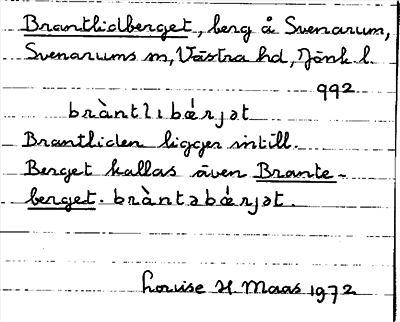 Brantlidberget, berg å Svenarum,
Svenarums sn, Västra hd, Jönk. l.
992
bràntlıbǿrjət
Brantliden ligger intill.
Berget kallas även Brante-
berget. bràntəbǿrjət.
Louise H Maas 1972